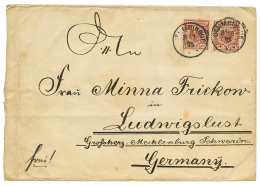 An
Frau Minna Frickow
in
Ludwigslust
Großherz. Mecklenburg Schwerin.
frei!
Germany.